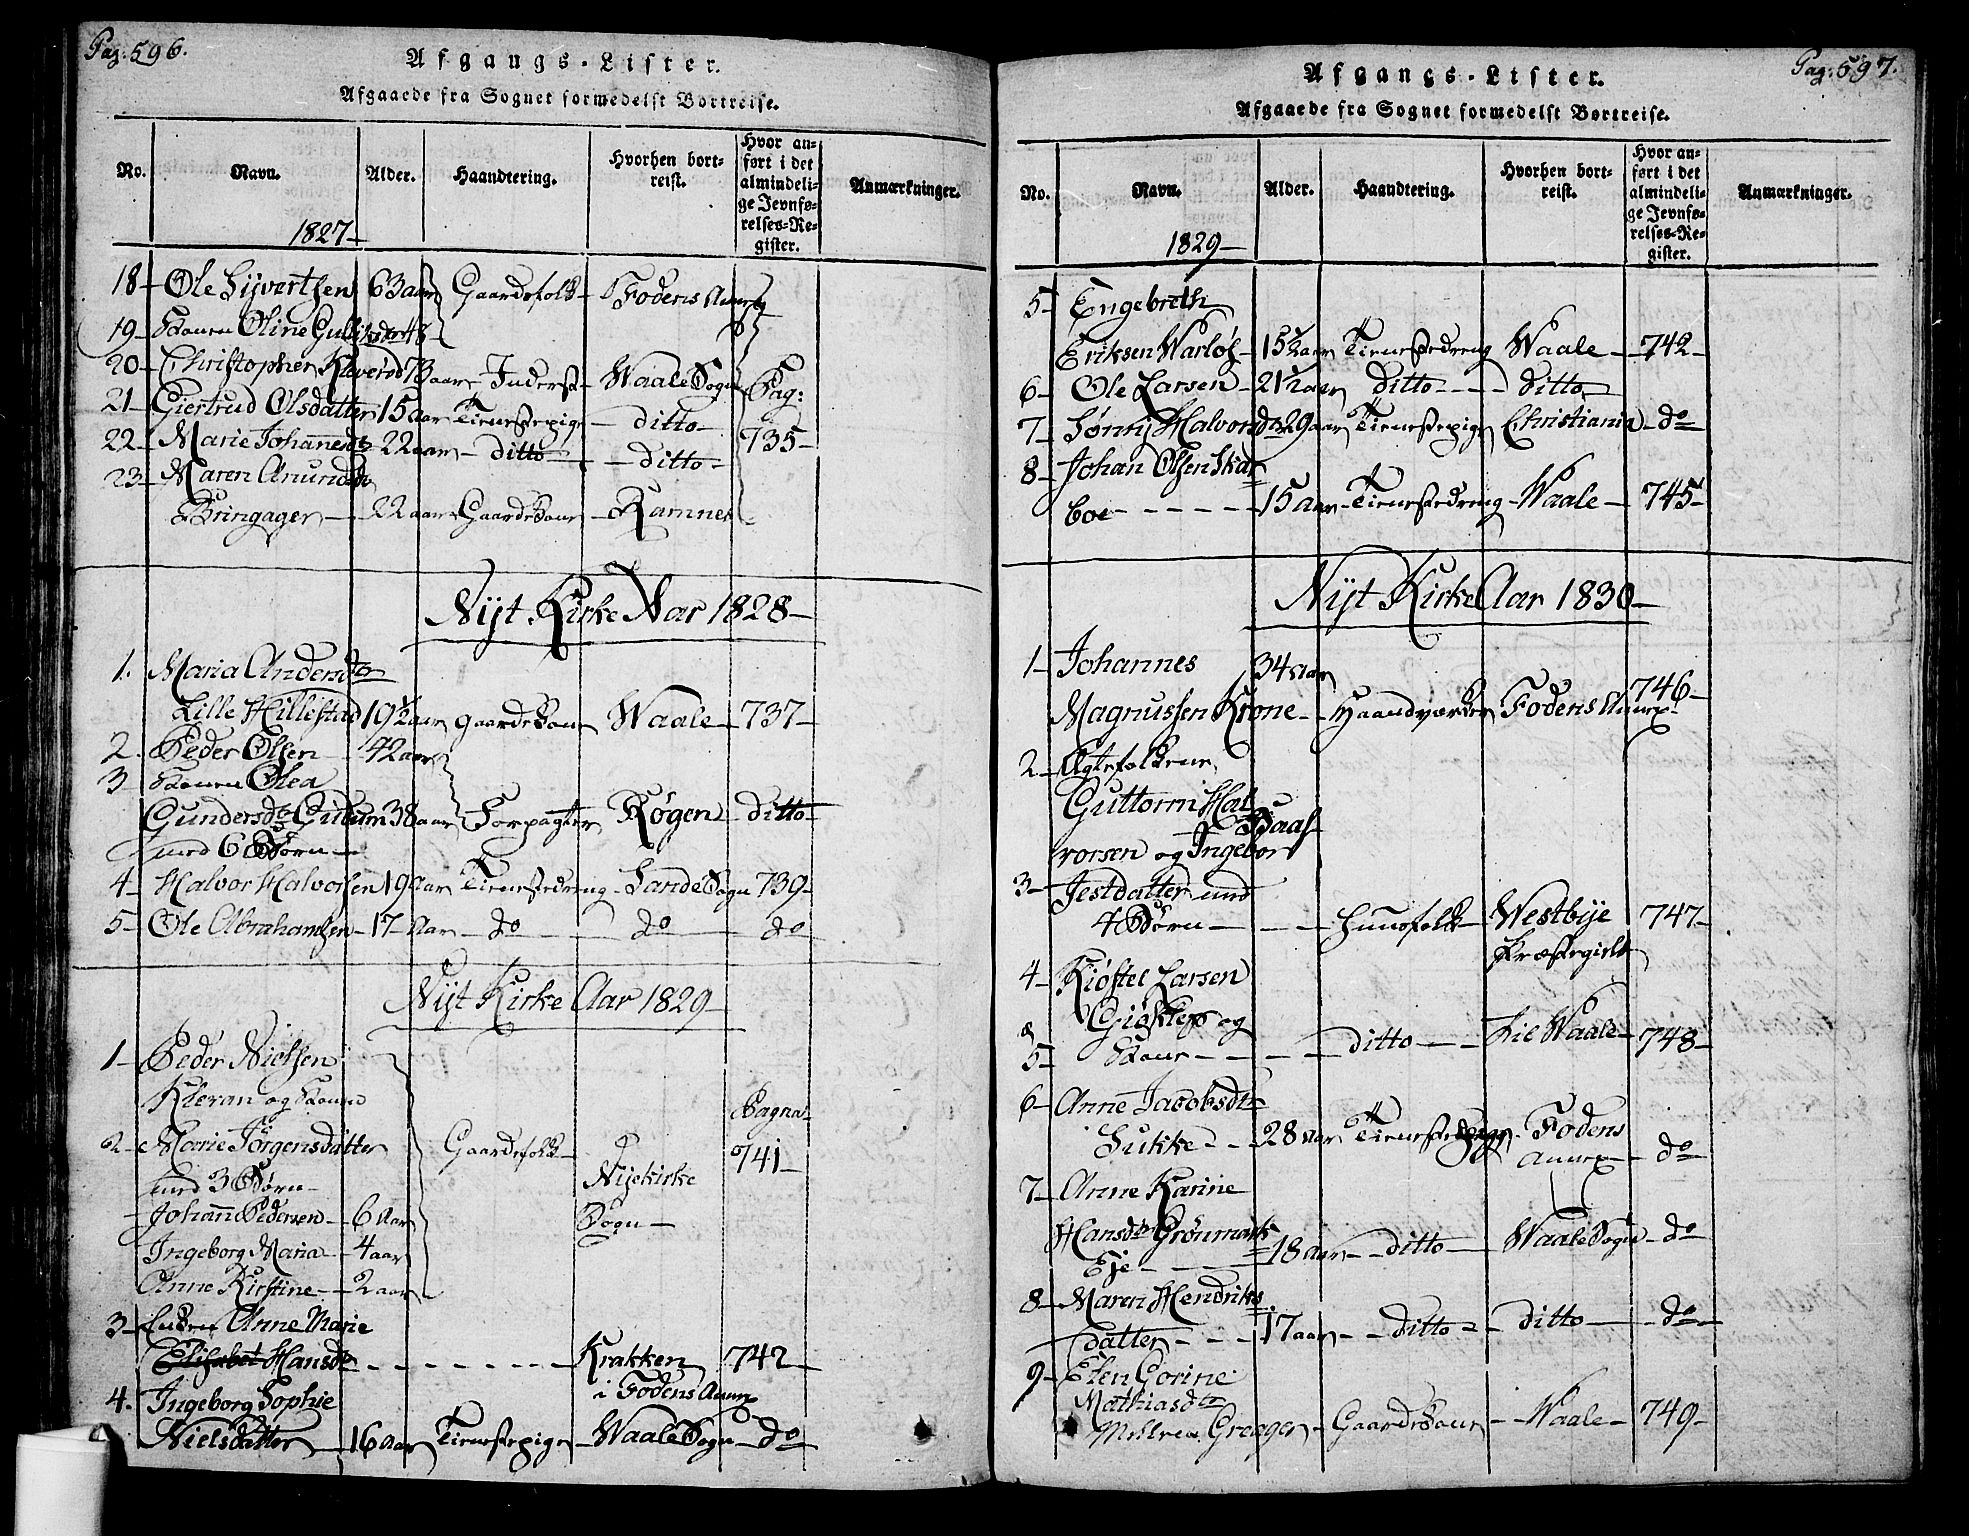 Pag: 596.
Afgangs-Lister.
Afgaaede fra Sognet formedelst Bortreise.
No. Navn. Alder. Haandtering. Hvorhen bortreist. Hvor anført i det almindelige Jevnførelses-Register. Anmærkninger.
1827
18 Ole Sijvertsen 63 aar Gaardefolk Fodens Annex
19 Konen Oline Gulliksdtr 48
20 Christopher Kleverød 73 aar Inderst Waale Sogn Pag:
21 Giertrud Olsdatter 15 aar Tienestepige ditto
22 Marie Johannesdr 22 aar ditto ditto 735
23 Maren Anundsdr
Bringager 22 aar Gaardekone Ramnes
Nijt Kirke Aar 1828
1. Maria Andersdtr
Lille Hillestad 19 1/2 aar gaardekone Waale 737
2. Peder Olsen 42 aar
3 Konen Olea
Gundersdr 38 aar Forpagter Røgen ditto
med 6 Børn
4 Halvor Halvorsen 19 Aar Tienestedreng Sande Sogn 739
5 Ole Abrahamsen 17 Aar do do do
Nijt Kirke Aar 1829
1 Peder Nielsen
Kleran og Konen Pagna
2 Marie Jörgensdatter Gaardefolk Nijekirke 741
med 3 Børn
Johan Pedersen 6 Aar Sogn
Ingeborg Maria 4 aar
Anne Kirstine 2 aar
3 Enken Anne Marie
Elisabet Hansdr Krakken 742
4. Ingeborg Sophie i Fodens Annex
Nielsdatter 16 Aar Tienestepige Waale Sogn do
Pag: 597.
Afgangs-Lister.
Afgaaede fra Sognet formedelst Bortreise.
No. Navn. Alder. Haandtering. Hvorhen bortreist. Hvor anført i det almindelige Jevnførelses-Register. Anmærkninger.
1829
5 Engebreth
Eriksen Warløs 15 1/2 aar Tienestedreng Waale 742
6 Ole Larsen 21 1/2 aar ditto ditto
7 Halvorsdr 29 aar Tienestepige Christiania do
8 Johan Olsen Skar
boe 15 Aar Tienestedreng Waale 745
Nijt Kirke Aar 1830
1 Johannes 34 Aar
Magnussen Krone Haandværker Fodens Annex 746
2 Ægtefolkene
Guttorm Hal
vorsen og Ingebor
3 Jestdatter med
4 Børn Huusfolk Westbije 747
Præstegield
4 Kiøstel Larsen
Giøklep og
& 5 Kone ditto Lie Waale 748
6 Anne Jacobsdtr
Sukke 28 Aar Tienestepige Fodens
Annex do
7 Anne Karine
Hansdr Grönmark
Eje 18 aar ditto Waale Sogn do
8 Maren Hendriks
datter 17 aar ditto ditto do
9 Elen Gorine
Mathiasdtr
Greager Gaardekone Waale 749